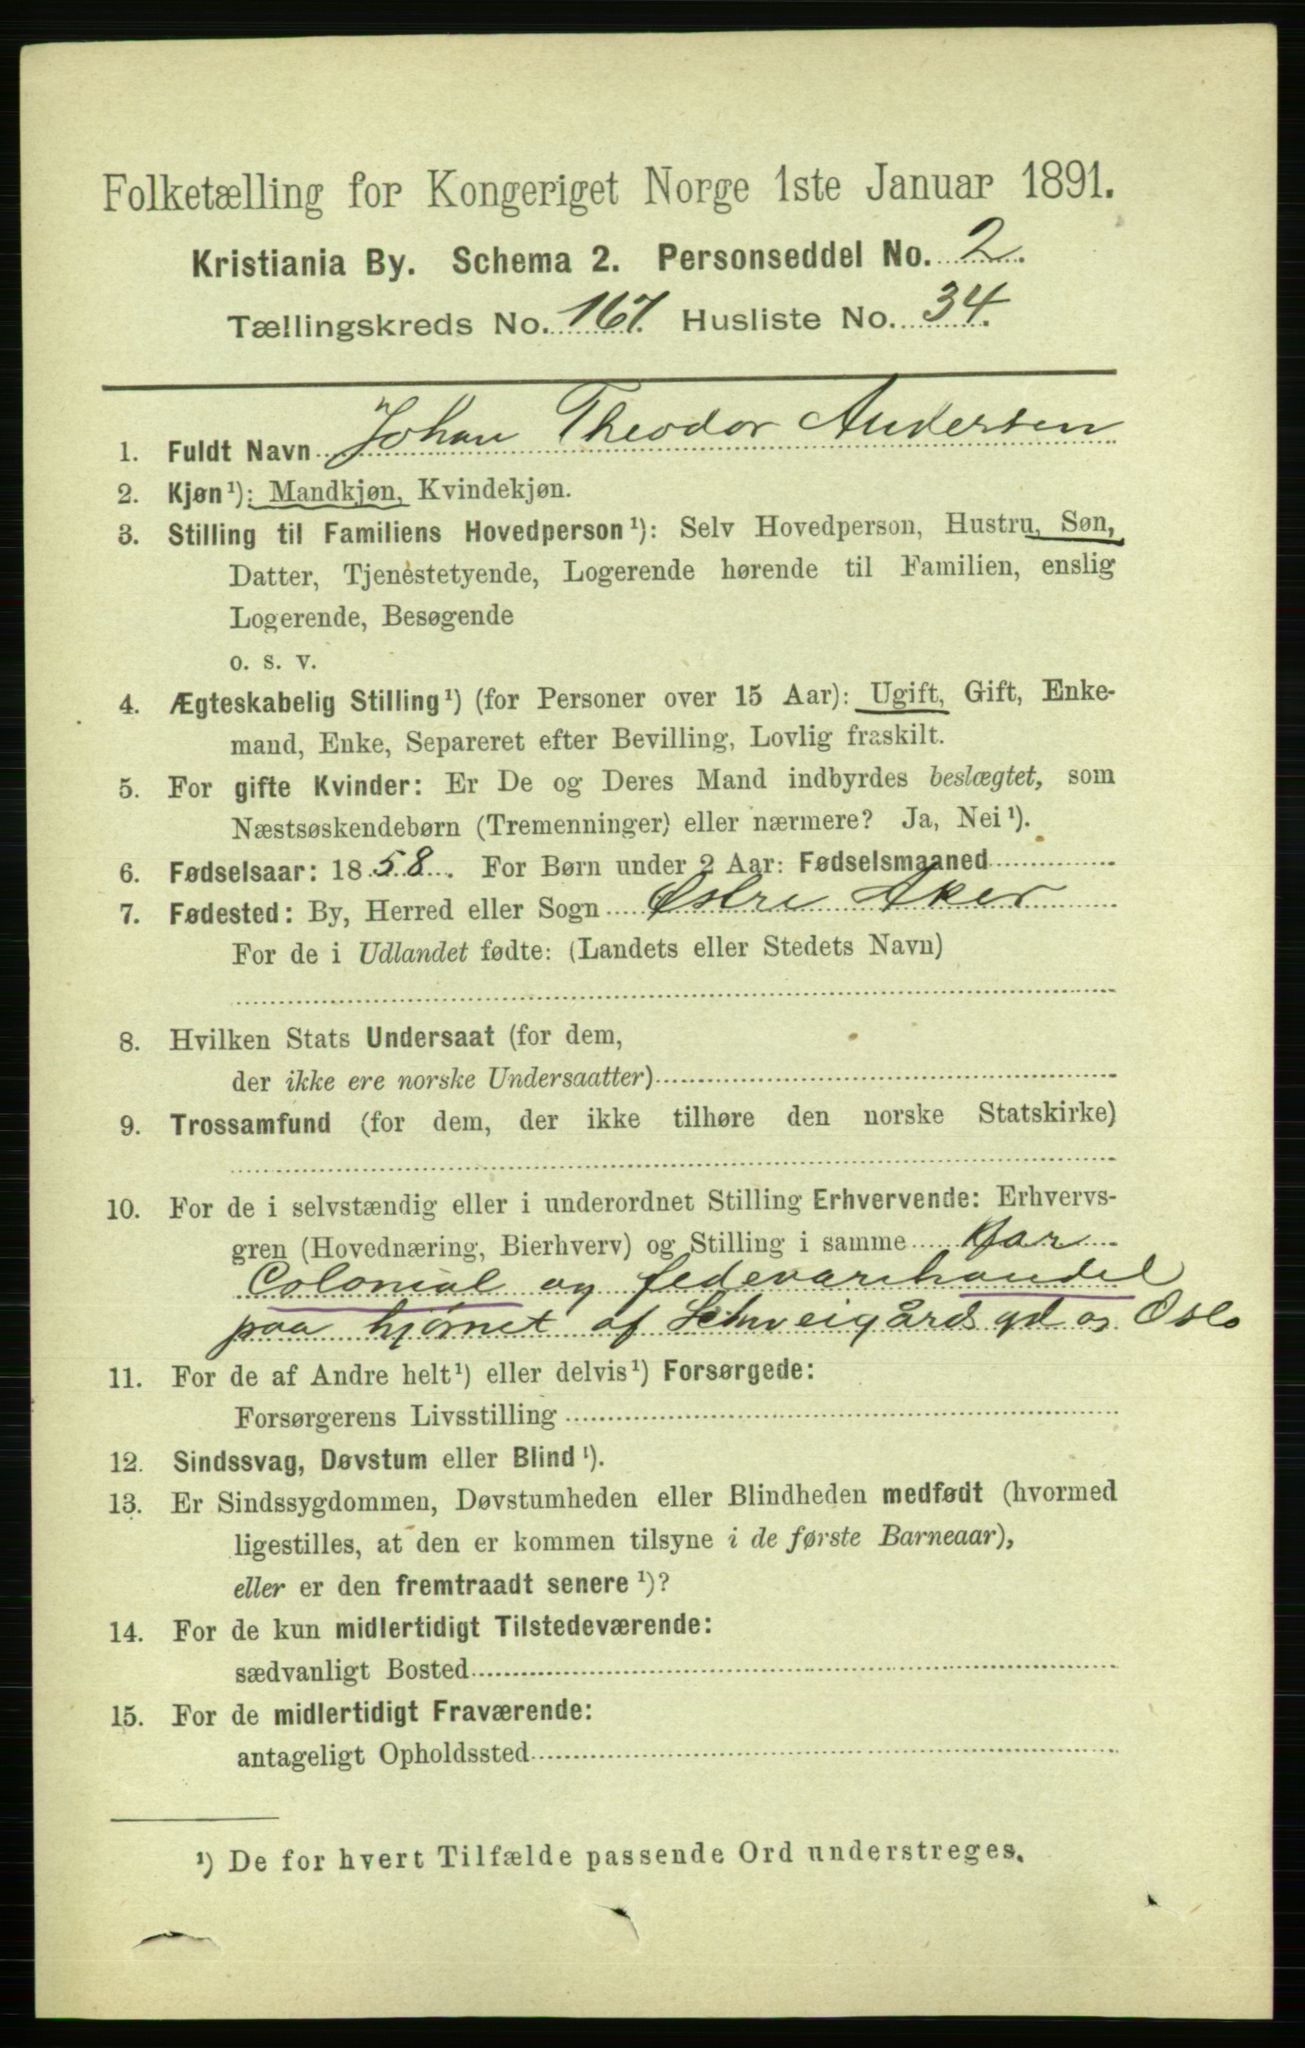 Folketælling for Kongeriget Norge 1ste Januar 1891.
Kristiania By. Schema 2. Personseddel No. 2.
Tællingskreds No. 167. Husliste No. 34.
1. Fuldt Navn Johan Theodor Andersen
2. Kjøn¹): Mandkjøn, Kvindekjøn.
3. Stilling til Familiens Hovedperson¹): Selv Hovedperson, Hustru, Søn,
Datter, Tjenestetyende, Logerende hørende til Familien, enslig
Logerende, Besøgende
o. s. v.
4. Ægteskabelig Stilling¹) (for Personer over 15 Aar): Ugift, Gift, Enke-
mand, Enke, Separeret efter Bevilling, Lovlig fraskilt.
5. For gifte Kvinder: Er De og Deres Mand indbyrdes beslægtet, som
Næstsøskendebørn (Tremenninger) eller nærmere? Ja, Nei¹).
6. Fødselsaar: 1858. For Børn under 2 Aar: Fødselsmaaned
7. Fødested: By, Herred eller Sogn Østre Aker
For de i Udlandet fødte: (Landets eller Stedets Navn)
8. Hvilken Stats Undersaat (for dem,
der ikke ere norske Undersaatter)
9. Trossamfund (for dem, der ikke tilhøre den norske Statskirke)
10. For de i selvstændig eller i underordnet Stilling Erhvervende: Erhvervs-
gren (Hovednæring, Bierhverv) og Stilling i samme har
Colonial og fedevarehandel
paa hjørnet af Schweigårds gd og Oslo
11. For de af Andre helt¹) eller delvis¹) Forsørgede:
Forsørgerens Livsstilling
12. Sindssvag, Døvstum eller Blind¹).
13. Er Sindssygdommen, Døvstumheden eller Blindheden medfødt (hvormed
ligestilles, at den er kommen tilsyne i de første Barneaar),
eller er den fremtraadt senere¹)?
14. For de kun midlertidigt Tilstedeværende:
sædvanligt Bosted
15. For de midlertidigt Fraværende:
antageligt Opholdssted
¹) De for hvert Tilfælde passende Ord understreges.